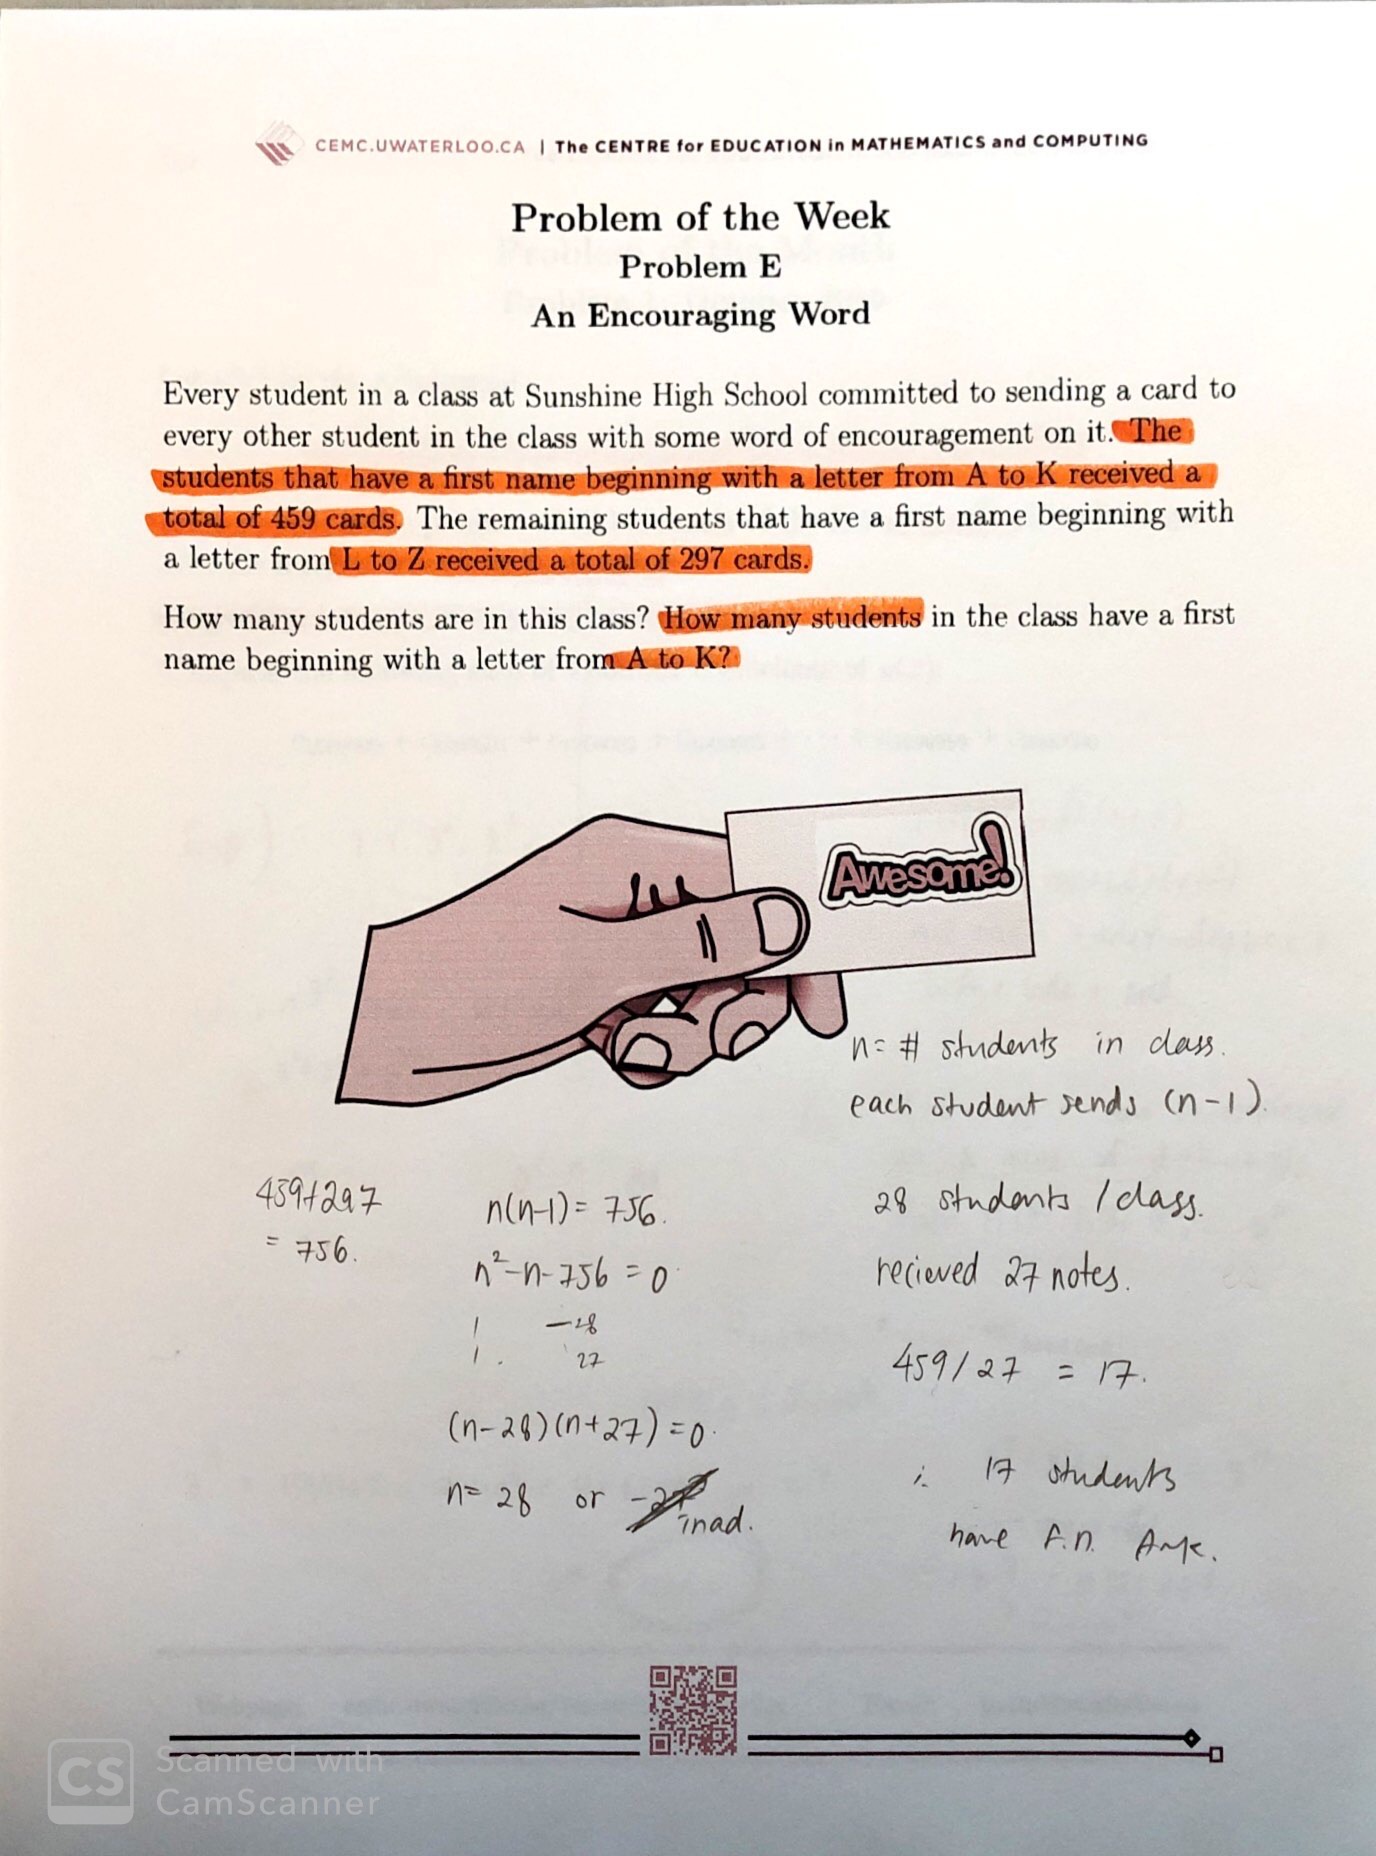 CEMC.UWATERLOO.CA | The CENTRE for EDUCATION in MATHEMATICS and COMPUTING
Problem of the Week
Problem E
An Encouraging Word
Every student in a class at Sunshine High School committed to sending a card to
every other student in the class with some word of encouragement on it. The
students that have a first name beginning with a letter from A to K received a
total of 459 cards. The remaining students that have a first name beginning with
a letter from L to Z received a total of 297 cards.
How many students are in this class? How many students in the class have a first
name beginning with a letter from A to K?
Awesome!
n= # students in class.
each student sends (n-1).
459+297
= 756.
n(n-1)= 756.
n²-n-756 = 0
1 -28
1. 27
(n-28)(n+27)=0.
n= 28 or -27
inad.
28 students /class.
recieved 27 notes.
459/27 = 17.
∴ 17 students
have f.n. A~k.
CS Scanned with
CamScanner